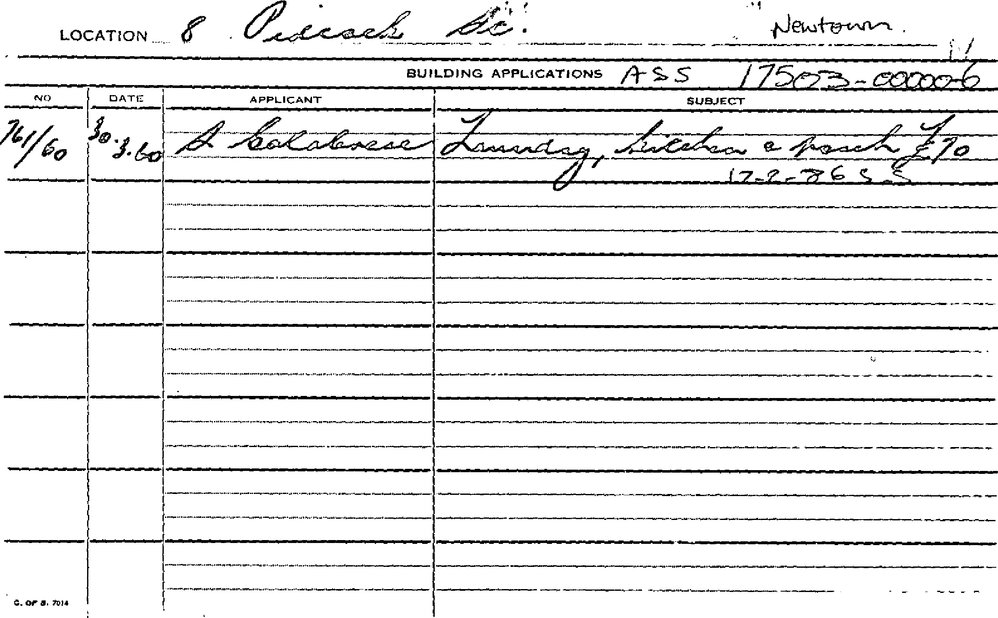 LOCATION 8 Pidcock St. Newtown.
BUILDING APPLICATIONS ASS 17503-000006
NO DATE APPLICANT SUBJECT
761/60 30.3.60 A Calabrese Laundry, kitchen & porch £70
17-2-86 S.S
C. OF S. 7014